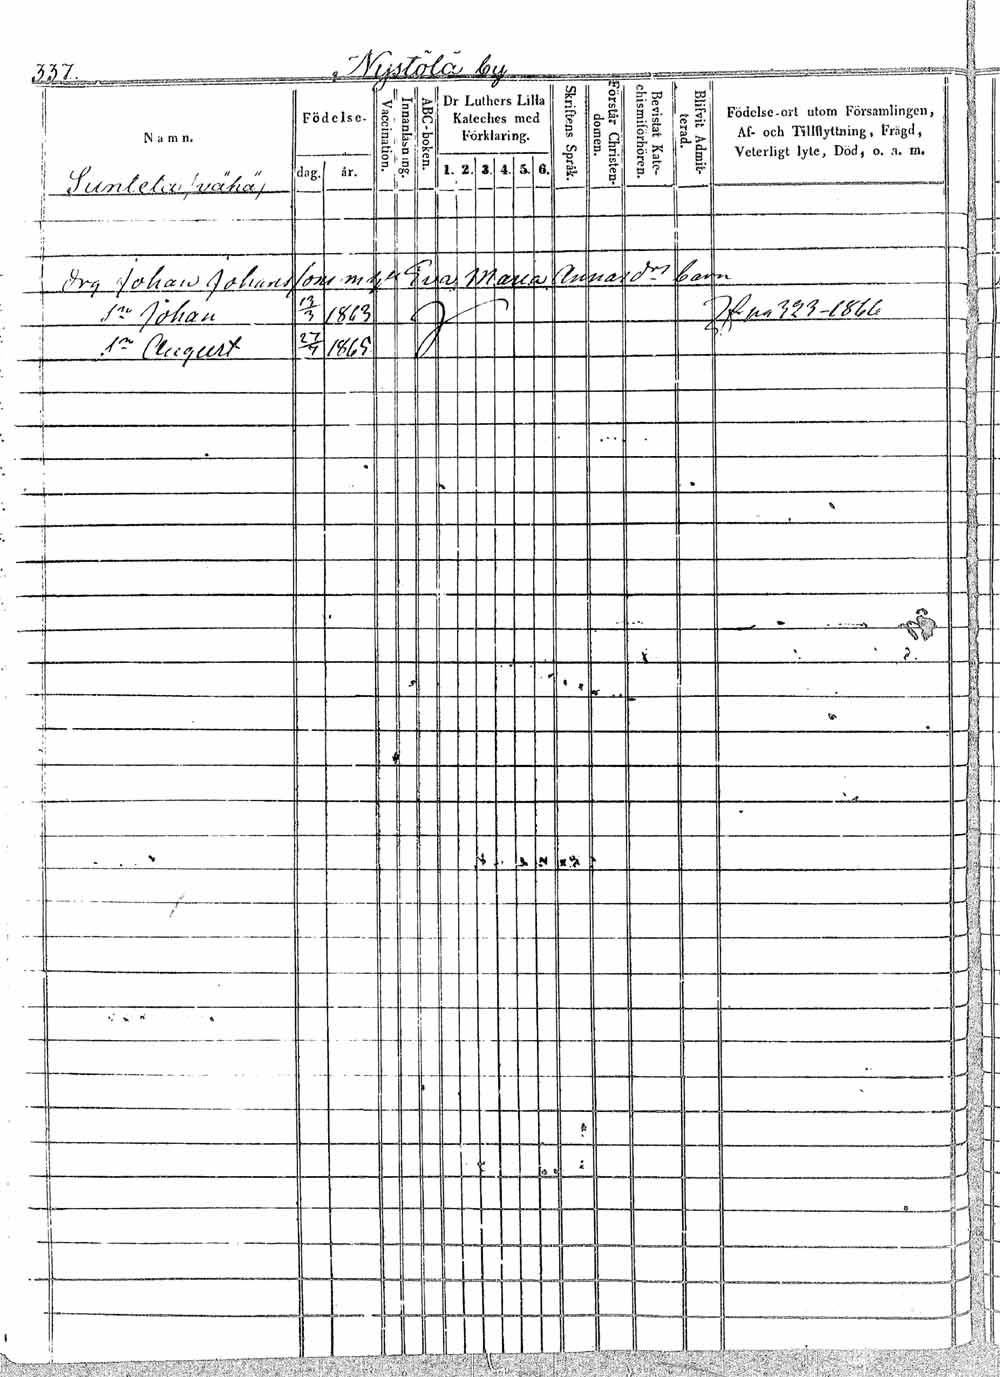 337. Nystölä by
Namn.
Födelse-
dag. år.
Vaccination.
Innanläsning.
ABC-boken.
Dr Luthers Lilla
Kateches med
Förklaring.
1. 2. 3. 4. 5. 6.
Skriftens Språk.
Förstår Christen-
domen.
Bevistat Kate-
chismiförhören.
Blifvit Admit-
terad.
Födelse-ort utom Församlingen,
Af- och Tillflyttning, Frägd,
Veterligt lyte, Död, o. a. m.
Suntela (vähä)
drg Johan Johanssons m Eva Maria Annas drs barn
Sn Johan 13/3 1863 pag 323-1866
Sn August 1865